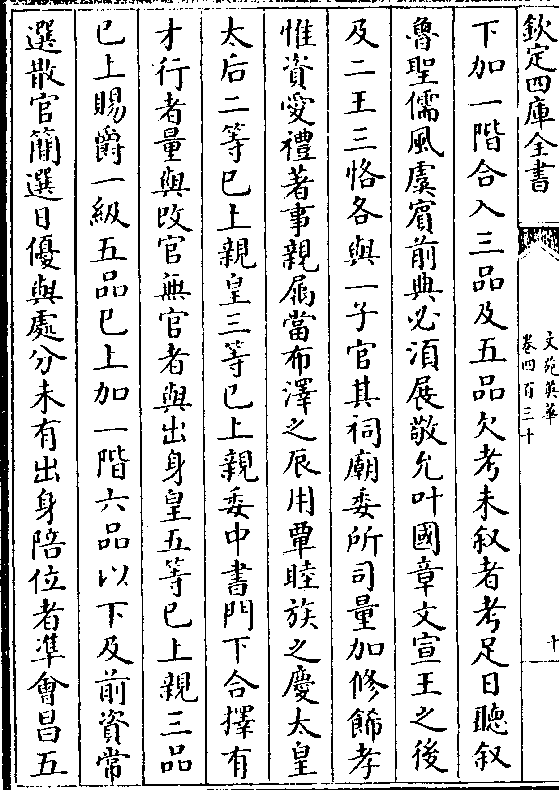 欽定四庫全書
文苑英華
卷四百三十
十
下加一階合入三品及五品欠考未叙者考足日聽叙
魯聖儒風虞賓前典必須展敬允叶國章文宣王之後
及二王三恪各與一子官其祠廟委所司量加修飾孝
惟資愛禮著事親屬當布澤之辰用覃睦族之慶太皇
太后二等已上親皇三等已上親委中書門下合擇有
才行者量與改官無官者與出身皇五等已上親三品
已上賜爵一級五品已上加一階六品以下及前資常
選散官簡選日優與處分未有出身陪位者準會昌五